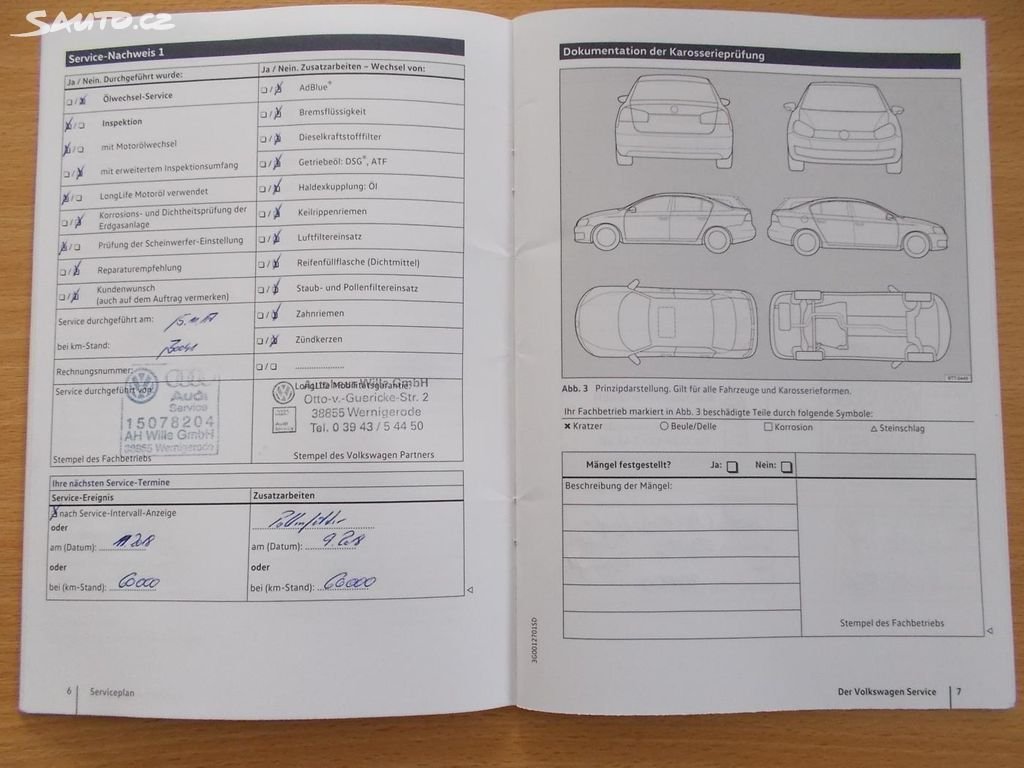 SAUTO.CZ
Service-Nachweis 1
Ja / Nein. Durchgeführt wurde:
❏ / ❏ Ölwechsel-Service
❏ / ❏ Inspektion
❏ / ❏ mit Motorölwechsel
❏ / ❏ mit erweitertem Inspektionsumfang
❏ / ❏ LongLife Motoröl verwendet
❏ / ❏ Korrosions- und Dichtheitsprüfung der
Erdgasanlage
❏ / ❏ Prüfung der Scheinwerfer-Einstellung
❏ / ❏ Reparaturempfehlung
❏ / ❏ Kundenwunsch
(auch auf dem Auftrag vermerken)
Service durchgeführt am: 15.11.17
bei km-Stand:
Rechnungsnummer:
Service durchgeführt von:
Audi
Service
15078204
AH Wille GmbH
38855 Wernigerode
Stempel des Fachbetriebs
Ja / Nein. Zusatzarbeiten – Wechsel von:
❏ / ❏ AdBlue®
❏ / ❏ Bremsflüssigkeit
❏ / ❏ Dieselkraftstofffilter
❏ / ❏ Getriebeöl: DSG®, ATF
❏ / ❏ Haldexkupplung: Öl
❏ / ❏ Keilrippenriemen
❏ / ❏ Luftfiltereinsatz
❏ / ❏ Reifenfüllflasche (Dichtmittel)
❏ / ❏ Staub- und Pollenfiltereinsatz
❏ / ❏ Zahnriemen
❏ / ❏ Zündkerzen
❏ / ❏ ....................
LongLife Mobilitätsgarantie:
Autohaus Wille GmbH
Otto-v.-Guericke-Str. 2
38855 Wernigerode
Tel. 0 39 43 / 5 44 50
Stempel des Volkswagen Partners
Ihre nächsten Service-Termine
Service-Ereignis
❏ nach Service-Intervall-Anzeige
oder
am (Datum): 11.2018
oder
bei (km-Stand): 60000
Zusatzarbeiten
Pollenfilter
am (Datum): 9.2018
oder
bei (km-Stand): 60000
6 Serviceplan
Dokumentation der Karosserieprüfung
Abb. 3 Prinzipdarstellung. Gilt für alle Fahrzeuge und Karosserieformen.
Ihr Fachbetrieb markiert in Abb. 3 beschädigte Teile durch folgende Symbole:
✖ Kratzer ○ Beule/Delle □ Korrosion △ Steinschlag
Mängel festgestellt? Ja: ❏ Nein: ❏
Beschreibung der Mängel:
Stempel des Fachbetriebs
3G0012701SD
Der Volkswagen Service 7